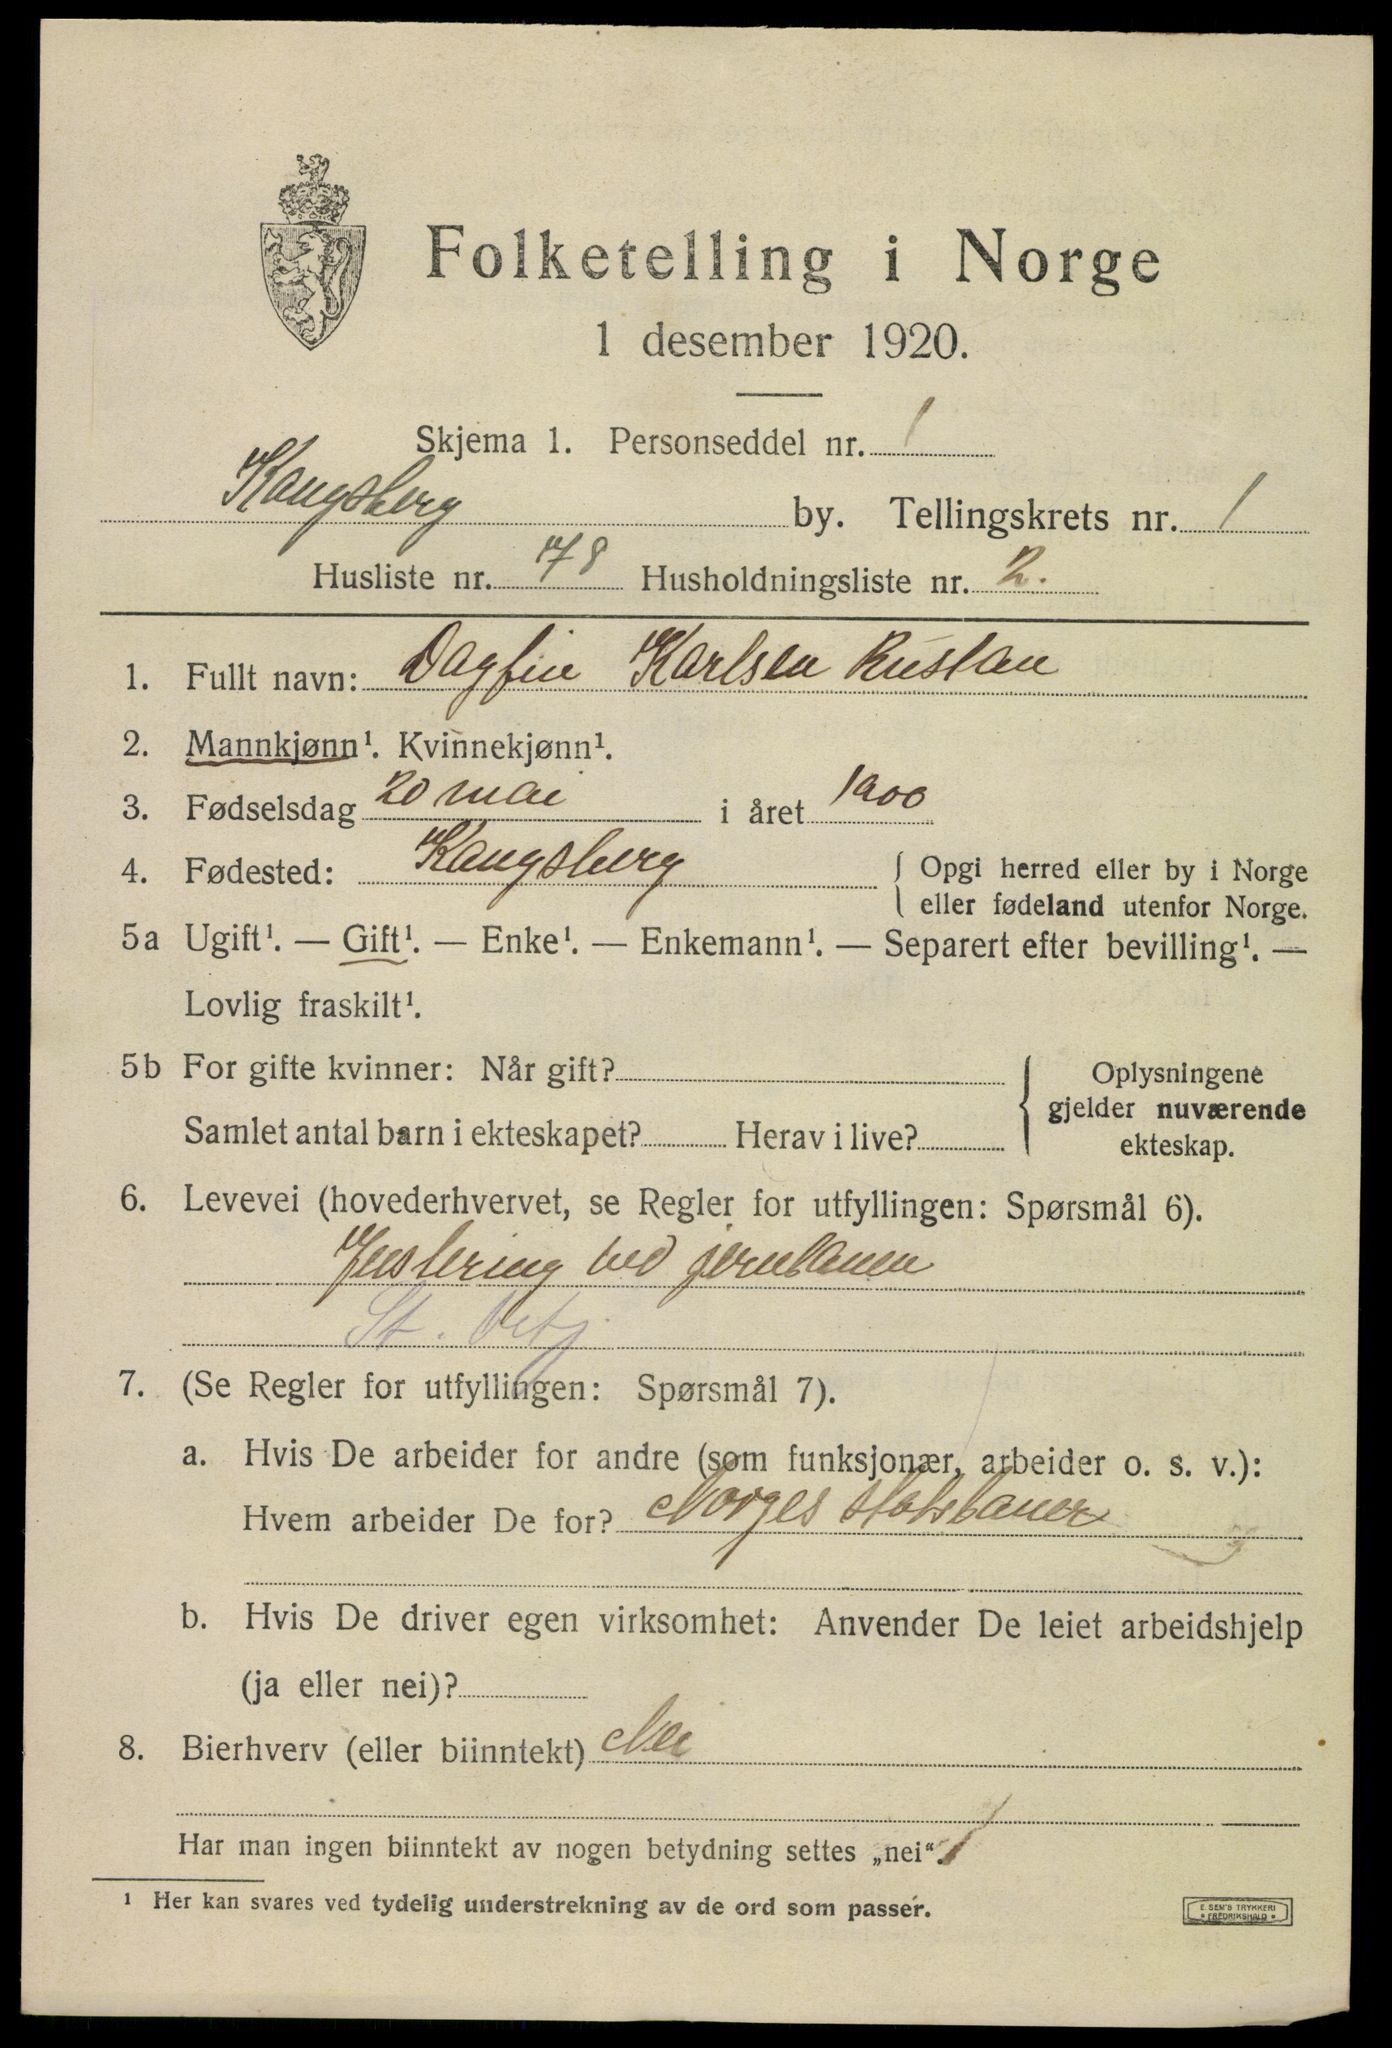 Folketelling i Norge
1 desember 1920.
Skjema 1. Personseddel nr. 1
Kongsberg by. Tellingskrets nr. 1
Husliste nr. 78 Husholdningsliste nr. 2.
1. Fullt navn: Dagfin Karlsen Rustan
2. Mannkjønn¹. Kvinnekjønn¹.
3. Fødselsdag 20 mai i året 1900
4. Fødested: Kongsberg { Opgi herred eller by i Norge
eller fødeland utenfor Norge.
5a Ugift¹. — Gift¹. — Enke¹. — Enkemann¹. — Separert efter bevilling¹. —
Lovlig fraskilt¹.
5b For gifte kvinner: Når gift? { Oplysningene
gjelder nuværende
Samlet antal barn i ekteskapet? Herav i live? ekteskap.
6. Levevei (hovederhvervet, se Regler for utfyllingen: Spørsmål 6).
ved jernbanen
St.
7. (Se Regler for utfyllingen: Spørsmål 7).
a. Hvis De arbeider for andre (som funksjonær, arbeider o. s. v.):
Hvem arbeider De for? Norges statsbaner
b. Hvis De driver egen virksomhet: Anvender De leiet arbeidshjelp
(ja eller nei)?
8. Bierhverv (eller biinntekt) Nei
Har man ingen biinntekt av nogen betydning settes „nei“.
¹ Her kan svares ved tydelig understrekning av de ord som passer.
E. SEM'S TRYKKERI
FREDRIKSHALD